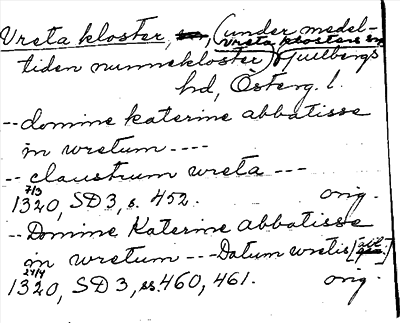 Vreta kloster, (under medel-
Vreta klosters sn
tiden nunnekloster) Gullbergs
hd, Österg. l.
-- domine katerine abbatisse
in wretum ----
-- claustrum wreta ---
7/3
1320, SD 3, s. 452. orig.
-- Domine Katerine abbatisse
in wretum --- Datum wretis
24/4
1320, SD 3, ss. 460, 461. orig.